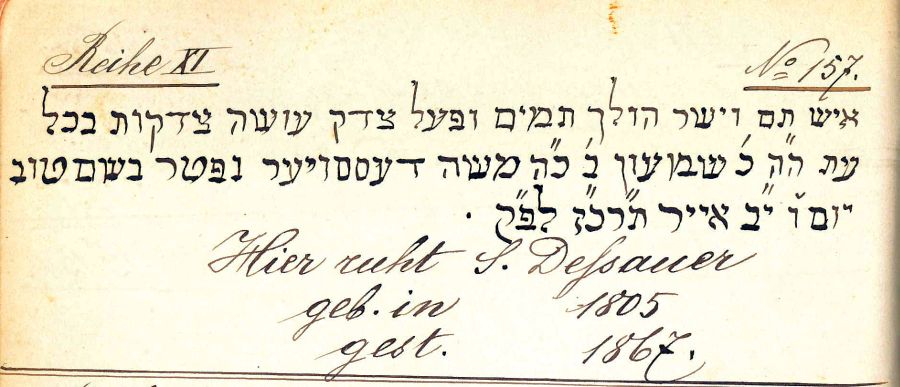 Reihe XI
No 157.
איש תם וישר הולך תמים ופעל צדק עושה צדקות בכל
עת ה"ה כ' שמעון ב' כ"ה משה דעססויער נפטר בשם טוב
יום ו' י"ב אייר תרכ"ז לפ"ק .
Hier ruht S. Dessauer
geb. in 1805
gest. 1867.